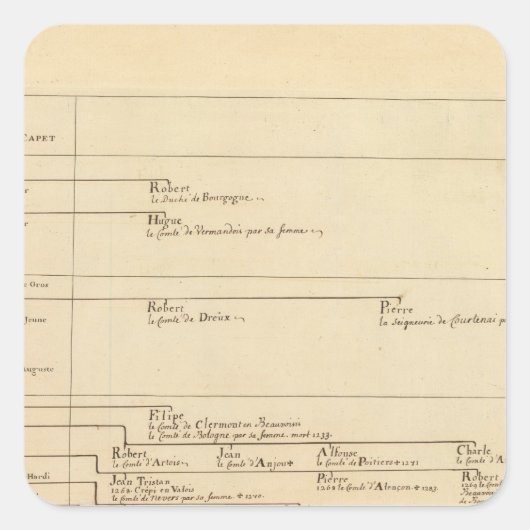 CAPET
Robert
le Duché de Bourgogne
Hugue
le Comté de Vermandois par sa femme
Gros
Robert
le Comté de Dreux
Pierre
la seigneurie de Courtenai
Jeune
Auguste
Filipe
le Comté de Clermont en Beauvoisis
le Comté de Bologne par sa femme. mort 1233.
Robert
le Comté d'Artois
Jean
le Comté d'Anjou +
Alfonse
le Comté de Poitiers + 1271
Charle
le Comté
Hardi
Jean Tristan
1268 Crépi en Valois
le Comté de Nevers par sa femme. + 1270.
Pierre
1268 le Comté d'Alençon + 1283.
Robert